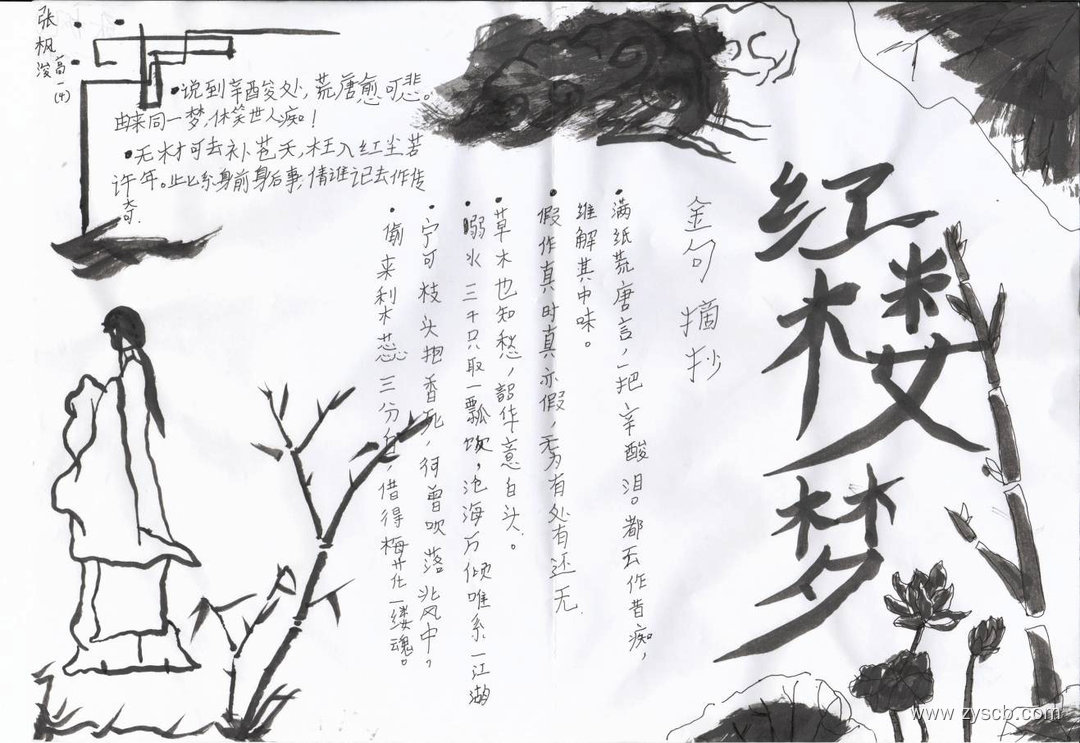 红楼梦
金句摘抄
•满纸荒唐言,一把辛酸泪。都云作者痴,
谁解其中味。
•假作真时真亦假,无为有处有还无.
•草木也知愁,韶华意白头。
•溺水三千只取一瓢饮,沧海万倾唯系一江潮
•宁可枝头抱香死,何曾吹落北风中,
•偷来梨蕊三分白,借得梅花一缕魂。
•说到辛酸处,荒唐愈可悲。
由来同一梦,休笑世人痴!
•无材可去补苍天,枉入红尘若
许年。此系身前身后事,倩谁记去作传
奇.
张枫浚
高一(4)
www.zyscb.com